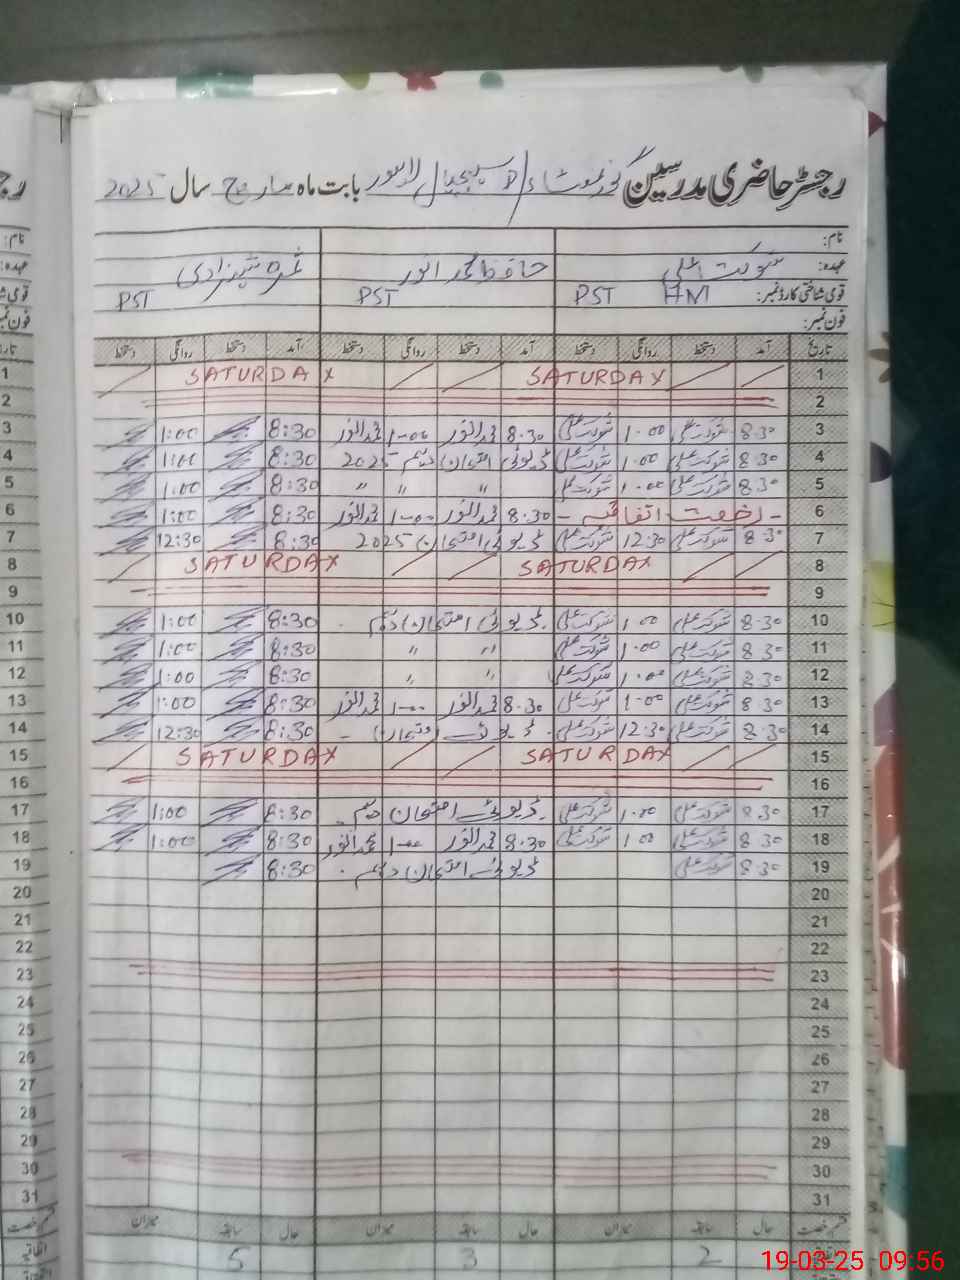 رجسٹر حاضری مدرسین بابت ماہ مارچ سال 2025
نام:
عہدہ: شوکت علی حافظ محمد انور
قومی شناختی کارڈ نمبر: HM PST PST PST
فون نمبر:
تاریخ آمد دستخط روانگی دستخط آمد دستخط روانگی دستخط آمد دستخط روانگی دستخط
1 SATURDAY SATURDAY
2
3 8.30 شوکت علی 1.00 شوکت علی 8.30 محمد انور 1-00 محمد انور 8:30 1:00
4 8.30 شوکت علی 1.00 شوکت علی ڈیوٹی امتحان دہم 2025 8:30 1:00
5 8.30 شوکت علی 1.00 شوکت علی " " " 8:30 1:00
6 - رخصت اتفاقیہ - 8.30 محمد انور 1-00 محمد انور 8:30 1:00
7 8.30 شوکت علی 12.30 شوکت علی ڈیوٹی امتحان 2025 8:30 12:30
8 SATURDAY SATURDAY
9
10 8.30 شوکت علی 1.00 شوکت علی ڈیوٹی امتحان دہم 8:30 1:00
11 8.30 شوکت علی 1.00 شوکت علی " " 8:30 1:00
12 8.30 شوکت علی 1.00 شوکت علی " " 8:30 1:00
13 8.30 شوکت علی 1.00 شوکت علی 8.30 محمد انور 1-00 محمد انور 8:30 1:00
14 8.30 شوکت علی 12.30 شوکت علی ڈیوٹی امتحان 8:30 12:30
15 SATURDAY SATURDAY
16
17 8.30 شوکت علی 1.00 شوکت علی ڈیوٹی امتحان دہم 8:30 1:00
18 8.30 شوکت علی 1.00 شوکت علی 8.30 محمد انور 1-00 محمد انور 8:30 1:00
19 8.30 شوکت علی ڈیوٹی امتحان دہم 8:30
20
21
22
23
24
25
26
27
28
29
30
31
قسم رخصت حال سابقہ میزان حال سابقہ میزان حال سابقہ میزان
اتفاقیہ 2 3 5
19-03-25 09:56